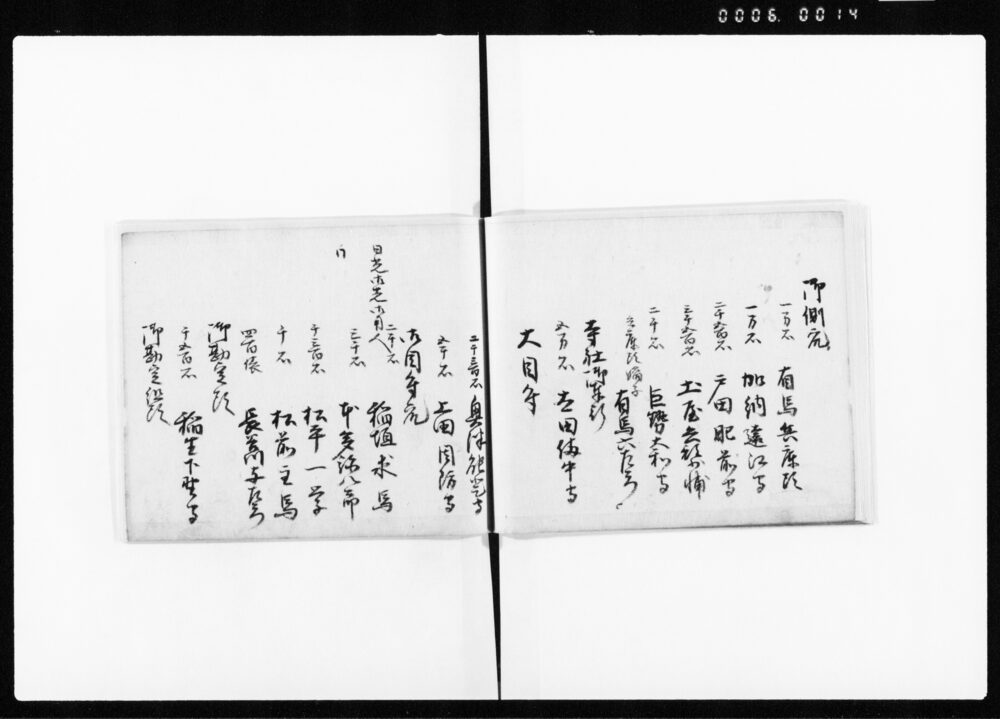 0006. 0014
御側衆
一万石 有馬兵庫頭
一万石 加納遠江守
二千五百石 戸田肥前守
三千五百石 土屋兵部少輔
二千石 巨勢大和守
兵庫頭 有馬六左衛門
寺社御奉行
五万石 太田備中守
大目付
二千三百石 奥津能登守
五千石 上田周防守
御目付衆
日光御先御目人
二千石 稲垣求馬
同
三千石 本多弥八郎
千三百石 松平一学
千石 松前主馬
四百俵 長
御勘定頭
千五百石 稲生下野守
御勘定組頭